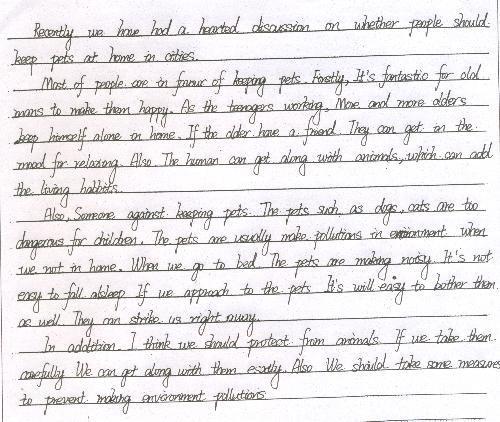 Recently we have had a hearted discussion on whether people should
keep pets at home in cities.
Most of people are in favour of keeping pets. Firstly, It's fantastic for old
mans to make them happy. As the teenagers working, More and more olders
keep himself alone in home. If the older have a friend. They can get in the
mood for relaxing. Also. The human can get along with animals, which can add
the living habbits.
Also, Someone against keeping pets. The pets such as dogs, cats are too
dangerous for children. The pets are usually make pollutions in environment when
we not in home. When we go to bed. The pets are making noisy. It's not
easy to fall asleep If we approach to the pets It's will easy to bother them
as well. They can strike us right away.
In addition. I think we should protect from animals If we take them
carefully We can get along with them easily. Also We should take some measures
to prevent making environment pollutions.